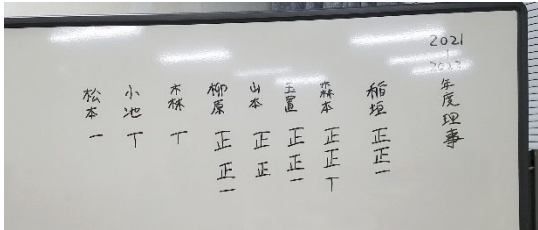 2021
年度理事
稲垣 正正一
森本 正正丅
玉置 正正一
山本 正正
柳原 正正一
丅
小池 丅
松本 一